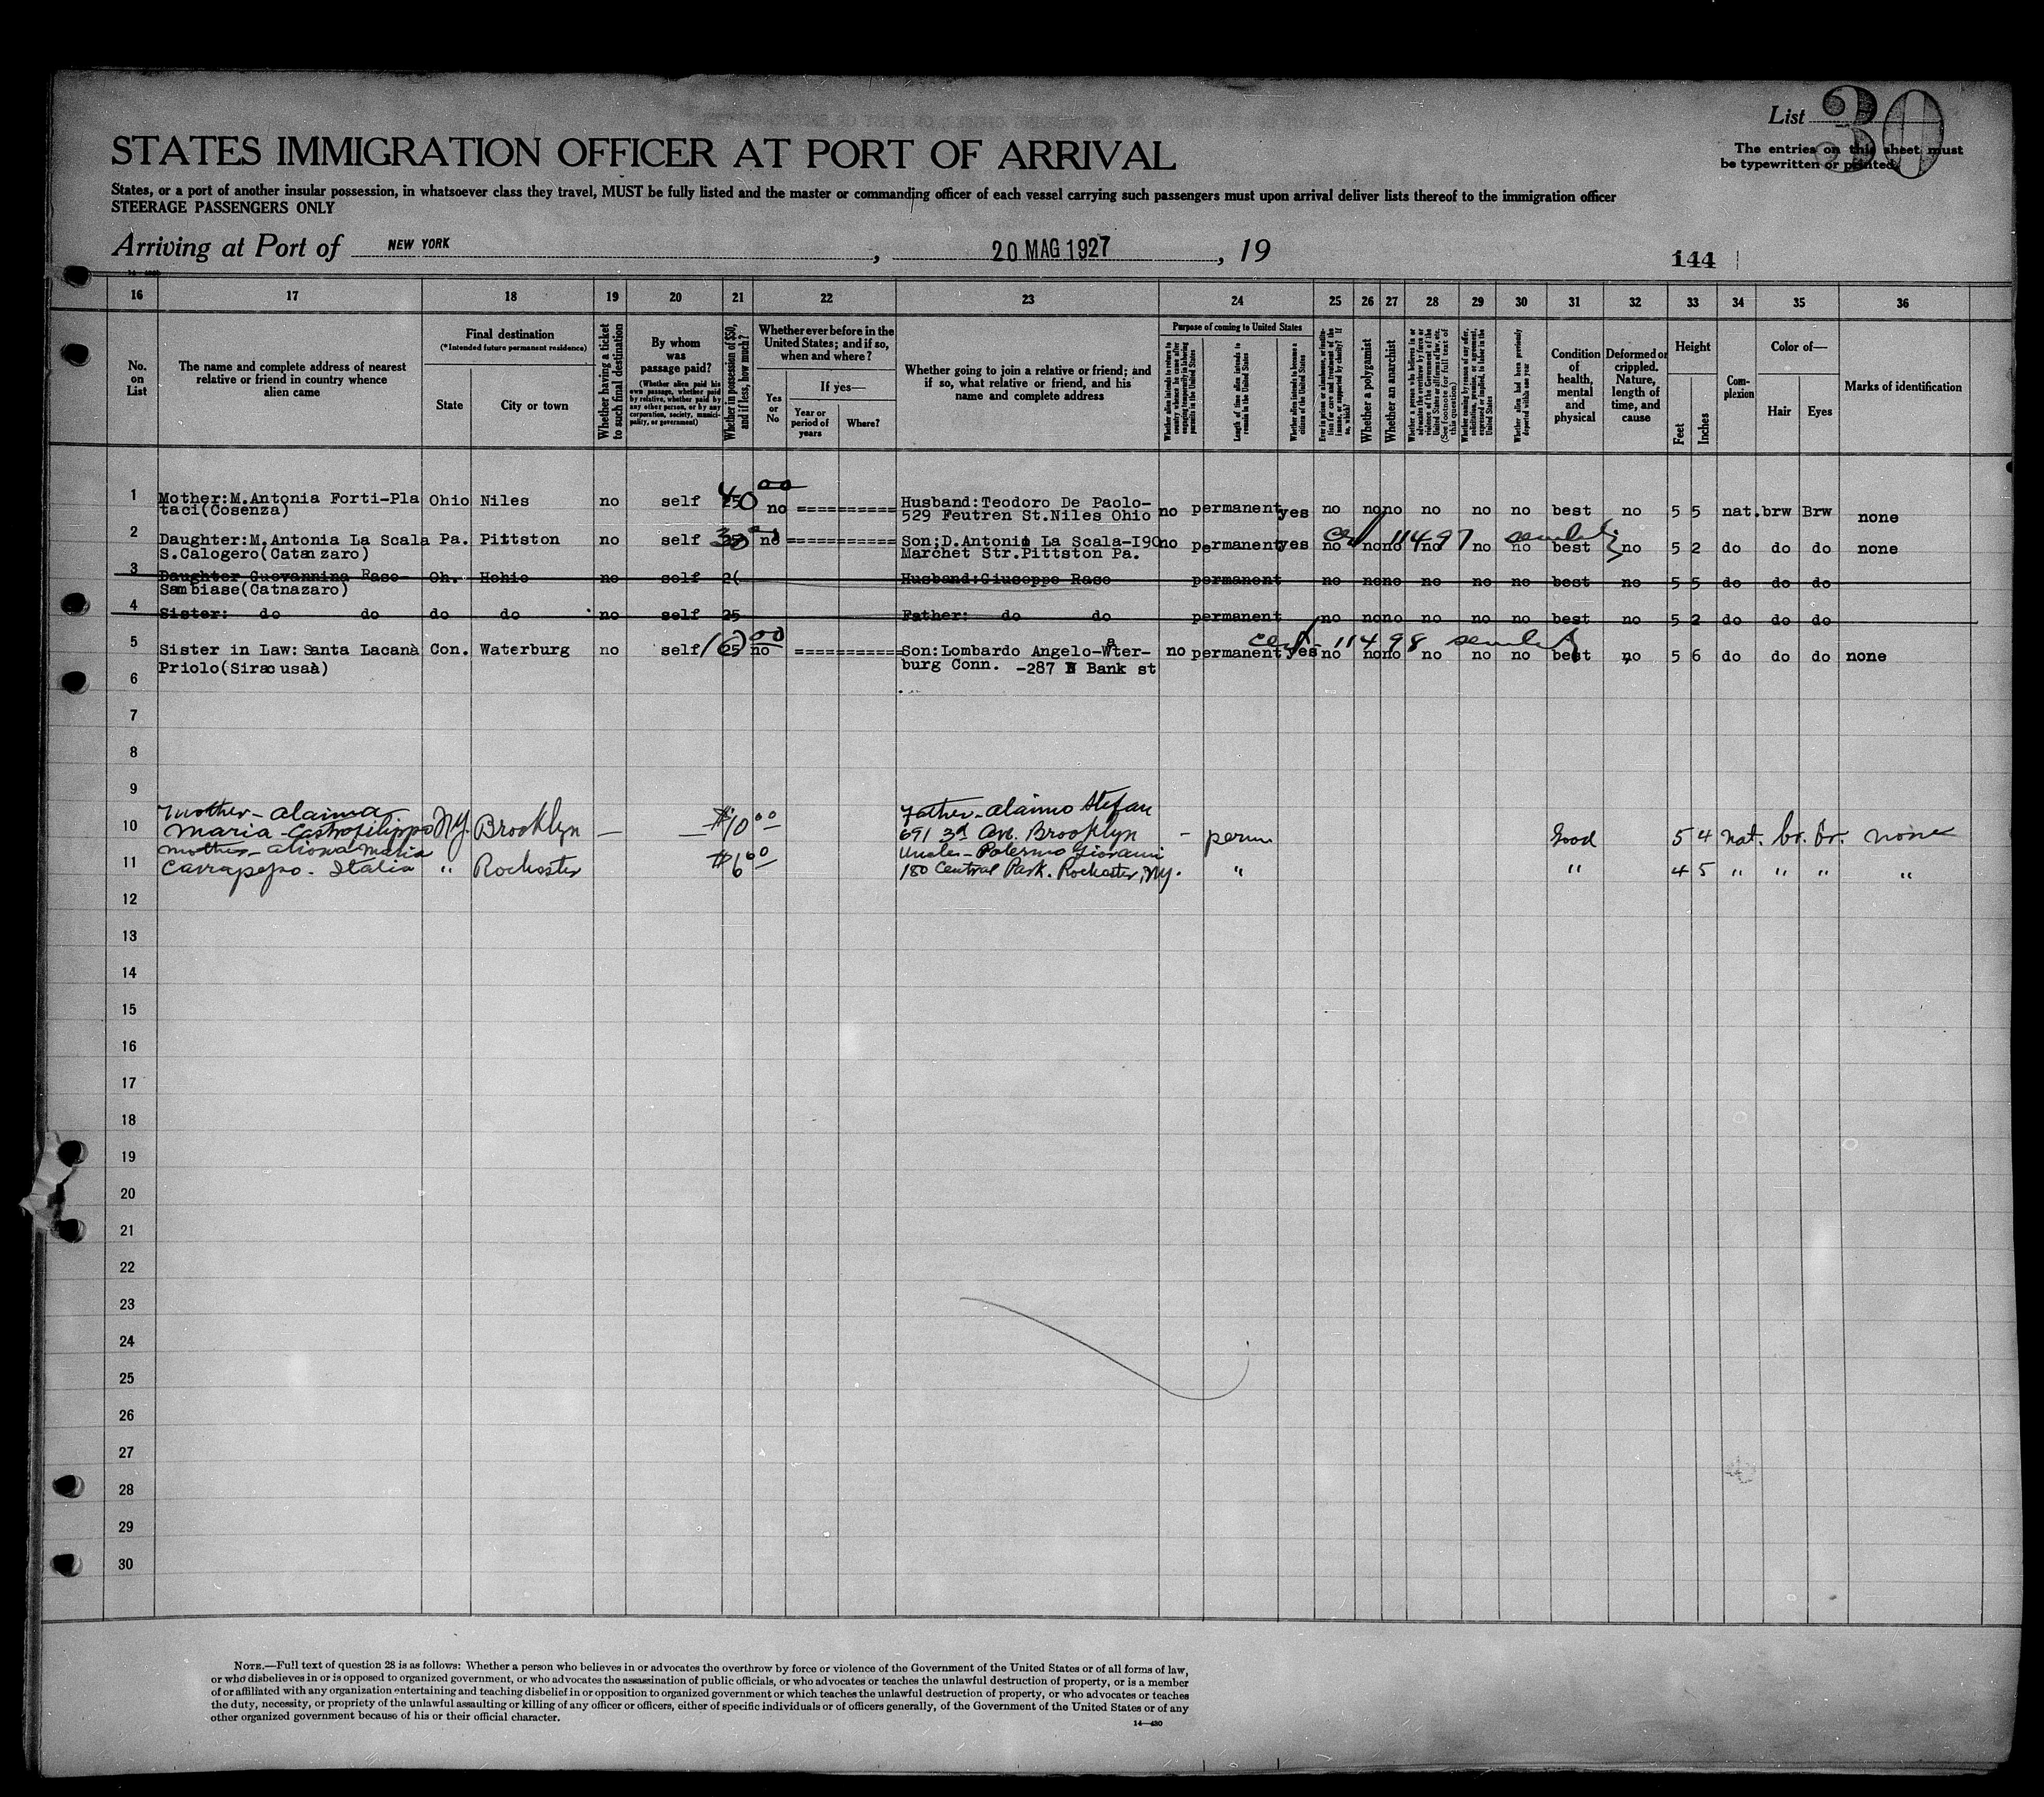 List 30
The entries on this sheet must
be typewritten or printed
STATES IMMIGRATION OFFICER AT PORT OF ARRIVAL
States, or a port of another insular possession, in whatsoever class they travel, MUST be fully listed and the master or commanding officer of each vessel carrying such passengers must upon arrival deliver lists thereof to the immigration officer
STEERAGE PASSENGERS ONLY
Arriving at Port of NEW YORK, 20 MAG 1927, 19
144
16 17 18 19 20 21 22 23 24 25 26 27 28 29 30 31 32 33 34 35 36
No. on List
The name and complete address of nearest relative or friend in country whence alien came
Final destination
(*Intended future permanent residence)
State
City or town
Whether having a ticket to such final destination
By whom was passage paid?
(Whether alien paid his own passage, whether paid by relative, whether paid by any other person, or by any corporation, society, municipality, or government)
Whether in possession of $50, and if less, how much?
Whether ever before in the United States; and if so, when and where?
Yes or No
If yes—
Year or period of years
Where?
Whether going to join a relative or friend; and if so, what relative or friend, and his name and complete address
Purpose of coming to United States
Length of time alien intends to remain in the United States
Whether alien intends to become a citizen of the United States
Whether a polygamist
Whether an anarchist
Whether alien had been previously deported within one year
Condition of health, mental and physical
Deformed or crippled. Nature, length of time, and cause
Height
Feet
Inches
Complexion
Color of—
Hair
Eyes
Marks of identification
1 Mother:M.Antonia Forti-Pla Ohio Niles no self 40 00 no ========== Husband:Teodoro De Paolo- no permanent yes no no no no no no best no 5 5 nat. brw Brw none
taci(Cosenza) 529 Feutren St.Niles Ohio
2 Daughter:M.Antonia La Scala Pa. Pittston no self 30 no =========== Son;D.Antonio La Scala-I90 no permanent yes no no no no no no best no 5 2 do do do none
S.Calogero(Catanzaro) Marchet Str.Pittston Pa. 11497
3 Daughter Guovannina Raso- Oh. Hohio no self 2( Husband:Giuseppe Raso permanent no no no no no no best no 5 5 do do do
Sambiase(Catnazaro)
4 Sister: do do do do no self 25 Father: do do permanent no no no no no no best no 5 2 do do do
5 Sister in Law: Santa Lacanà Con. Waterburg no self 25 no =========== Son:Lombardo Angelo-Water- no permanent yes no no no no no no best no 5 6 do do do none
Priolo(Siracusaà) burg Conn. -287 N Bank st 11498
6
7
8
9
10 mother - Alaimo Father - Alaimo Stefan
Maria - Castrofilippo N.Y. Brooklyn — — $10 00 691 3d Ave. Brooklyn - perm Good 5 4 nat. br. br. none
11 mother - Maria Uncle - Palermo Giovanni
Italia " Rochester $6 00 180 Central Park. Rochester, N.y. " " 4 5 " " " "
12
13
14
15
16
17
18
19
20
21
22
23
24
25
26
27
28
29
30
NOTE.—Full text of question 28 is as follows: Whether a person who believes in or advocates the overthrow by force or violence of the Government of the United States or of all forms of law,
or who disbelieves in or is opposed to organized government, or who advocates the assassination of public officials, or who advocates or teaches the unlawful destruction of property, or is a member
of or affiliated with any organization entertaining and teaching disbelief in or opposition to organized government or which teaches the unlawful destruction of property, or who advocates or teaches
the duty, necessity, or propriety of the unlawful assaulting or killing of any officer or officers, either of specific individuals or of officers generally, of the Government of the United States or of any
other organized government because of his or their official character.
14—430